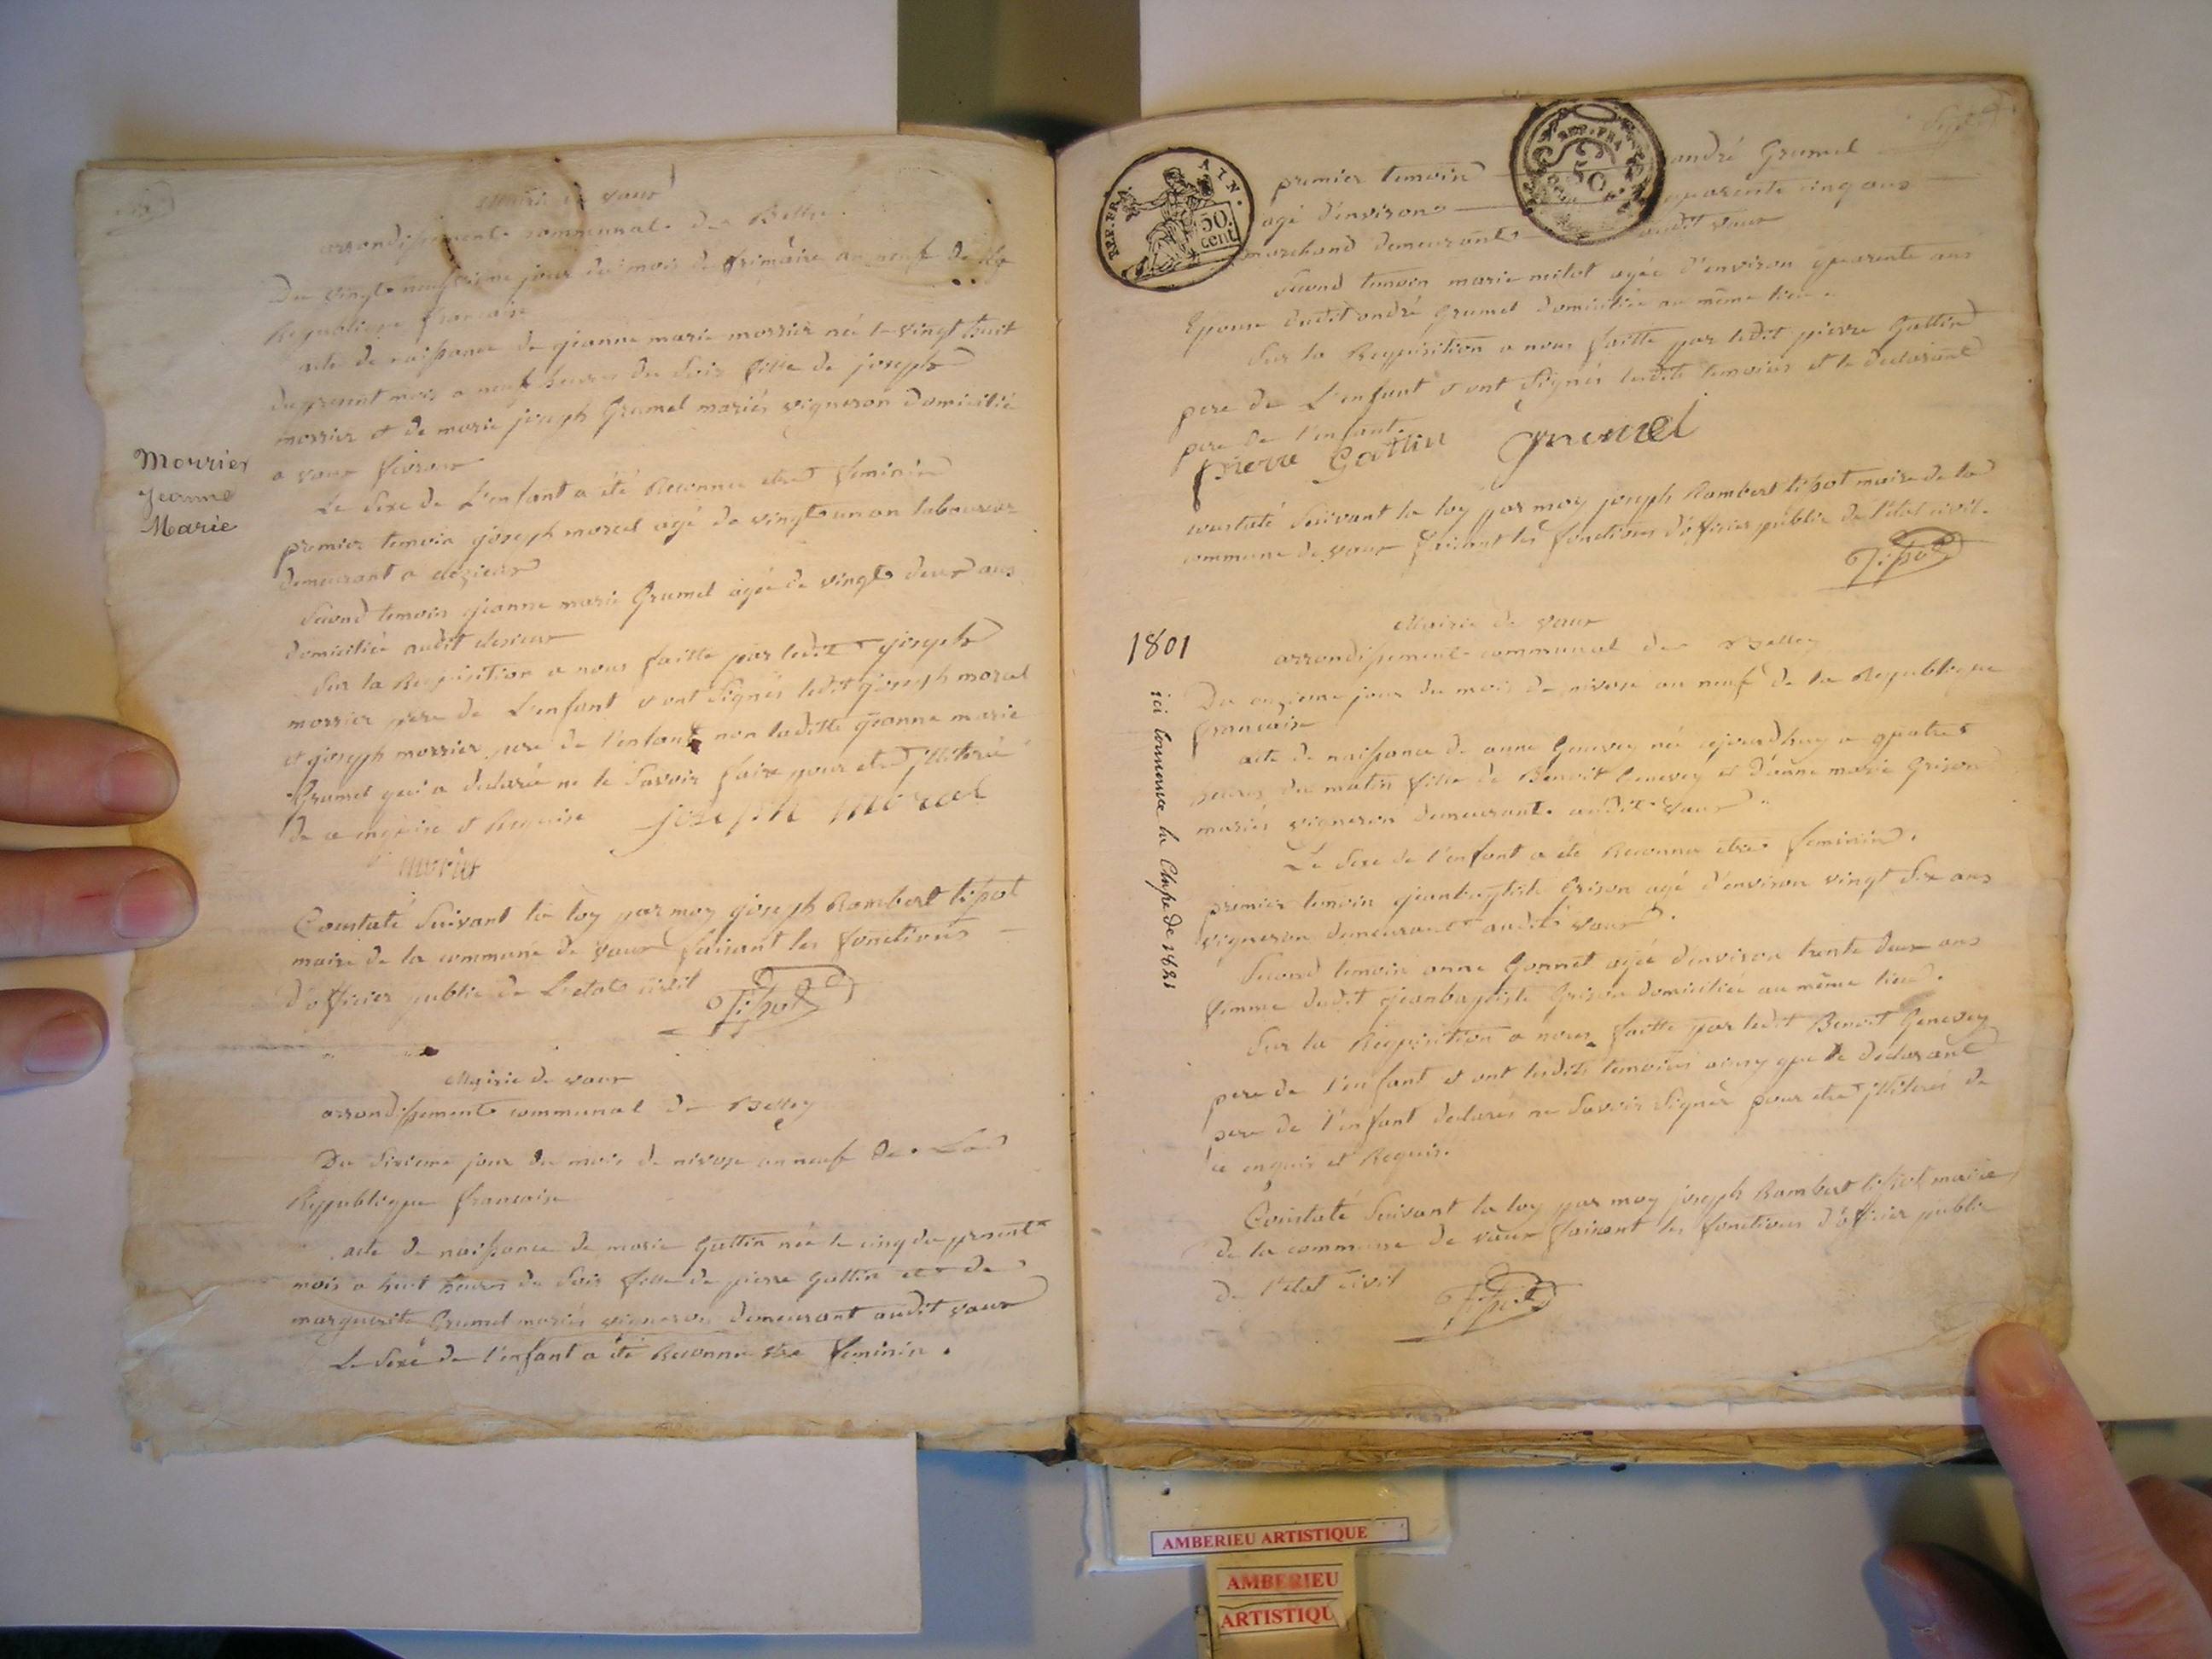 Mairie de vaux
arrondissement communal de Belley
Du vingt neufvieme jour du mois de frimaire an neuf de la
Republique francaise
acte de naissance de jeanne marie morrier née le vingt huit
du present mois a neuf heures du soir fille de joseph
morrier et de marie joseph Grumel mariés vigneron domicilié
a vaux
Le sexe de L'enfant a été Reconnu etre feminin
premier temoin joseph morel agé de vingt un an laboureur
demeurant a
Second temoin jeanne marie Grumel agée de vingt deux ans
domiciliée audit
Sur la Requisition a nous faitte par ledit joseph
morrier pere de L'enfant et ont signés ledit joseph morel
et joseph morrier pere de l'enfant non laditte jeanne marie
Grumel qui a declarée ne le savoir faire pour etre illiterée
de ce enquise et Requise joseph morel
Constaté suivant la loy par moy joseph Rambert tissot
maire de la commune de vaux faisant les fonctions
d'officier public de L'etat civil Tissot
Morrier
Jeanne
Marie
Mairie de vaux
arrondissement communal de Belley
Du sixieme jour du mois de nivose an neuf de La
Republique francaise
acte de naissance de marie Guttin née le cinq du present
mois a huit heures du soir fille de pierre Guttin et de
marguerite Grumel mariés vigneron demeurant audit vaux
Le sexe de l'enfant a été Reconnu etre feminin.
REP. FRA. AIN.
50 cent
REP. FRA
50
premier temoin andré Grumel
agé d'environ quarente cinq ans
marchand demeurant audit vaux
Second temoin marie agée d'environ quarente ans
Epouse dudit andré Grumel domiciliée au même lieu.
Sur la Requisition a nous faitte par ledit pierre Guttin
pere de L'enfant et ont signés lesdits temoins et le declarant
pere de l'enfant.
pierre Guttin Grumel
constaté suivant la loy par moy joseph Rambert tissot maire de la
commune de vaux faisant les fonctions d'officier public de l'etat civil.
Tissot
1801
Mairie de vaux
arrondissement communal de Belley
Du onzieme jour du mois de nivose an neuf de la Republique
francaise
acte de naissance de anne Genevey née ajourdhuy a quatre
heures du matin fille de Benoit Genevey et d'anne marie Grison
mariés vigneron demeurant audit vaux
Le sexe de l'enfant a été Reconnu etre feminin.
premier temoin jeanbaptiste Grison agé d'environ vingt six ans
vigneron demeurant audit vaux.
Second temoin anne Gonnet agée d'environ trente deux ans
femme dudit jeanbaptiste Grison domiciliée au même lieu.
Sur la Requisition a nous faitte par ledit Benoit Genevey
pere de l'enfant et ont lesdits temoins ainsy que le declarant
pere de l'enfant declarés ne savoir signer pour etre illiterés de
ce enquis et Requis.
Constaté suivant la loy par moy joseph Rambert tissot maire
de la commune de vaux faisant les fonctions d'officier public
de l'etat civil Tissot
ici commence la Classe de 1821
AMBERIEU ARTISTIQUE
AMBERIEU
ARTISTIQU